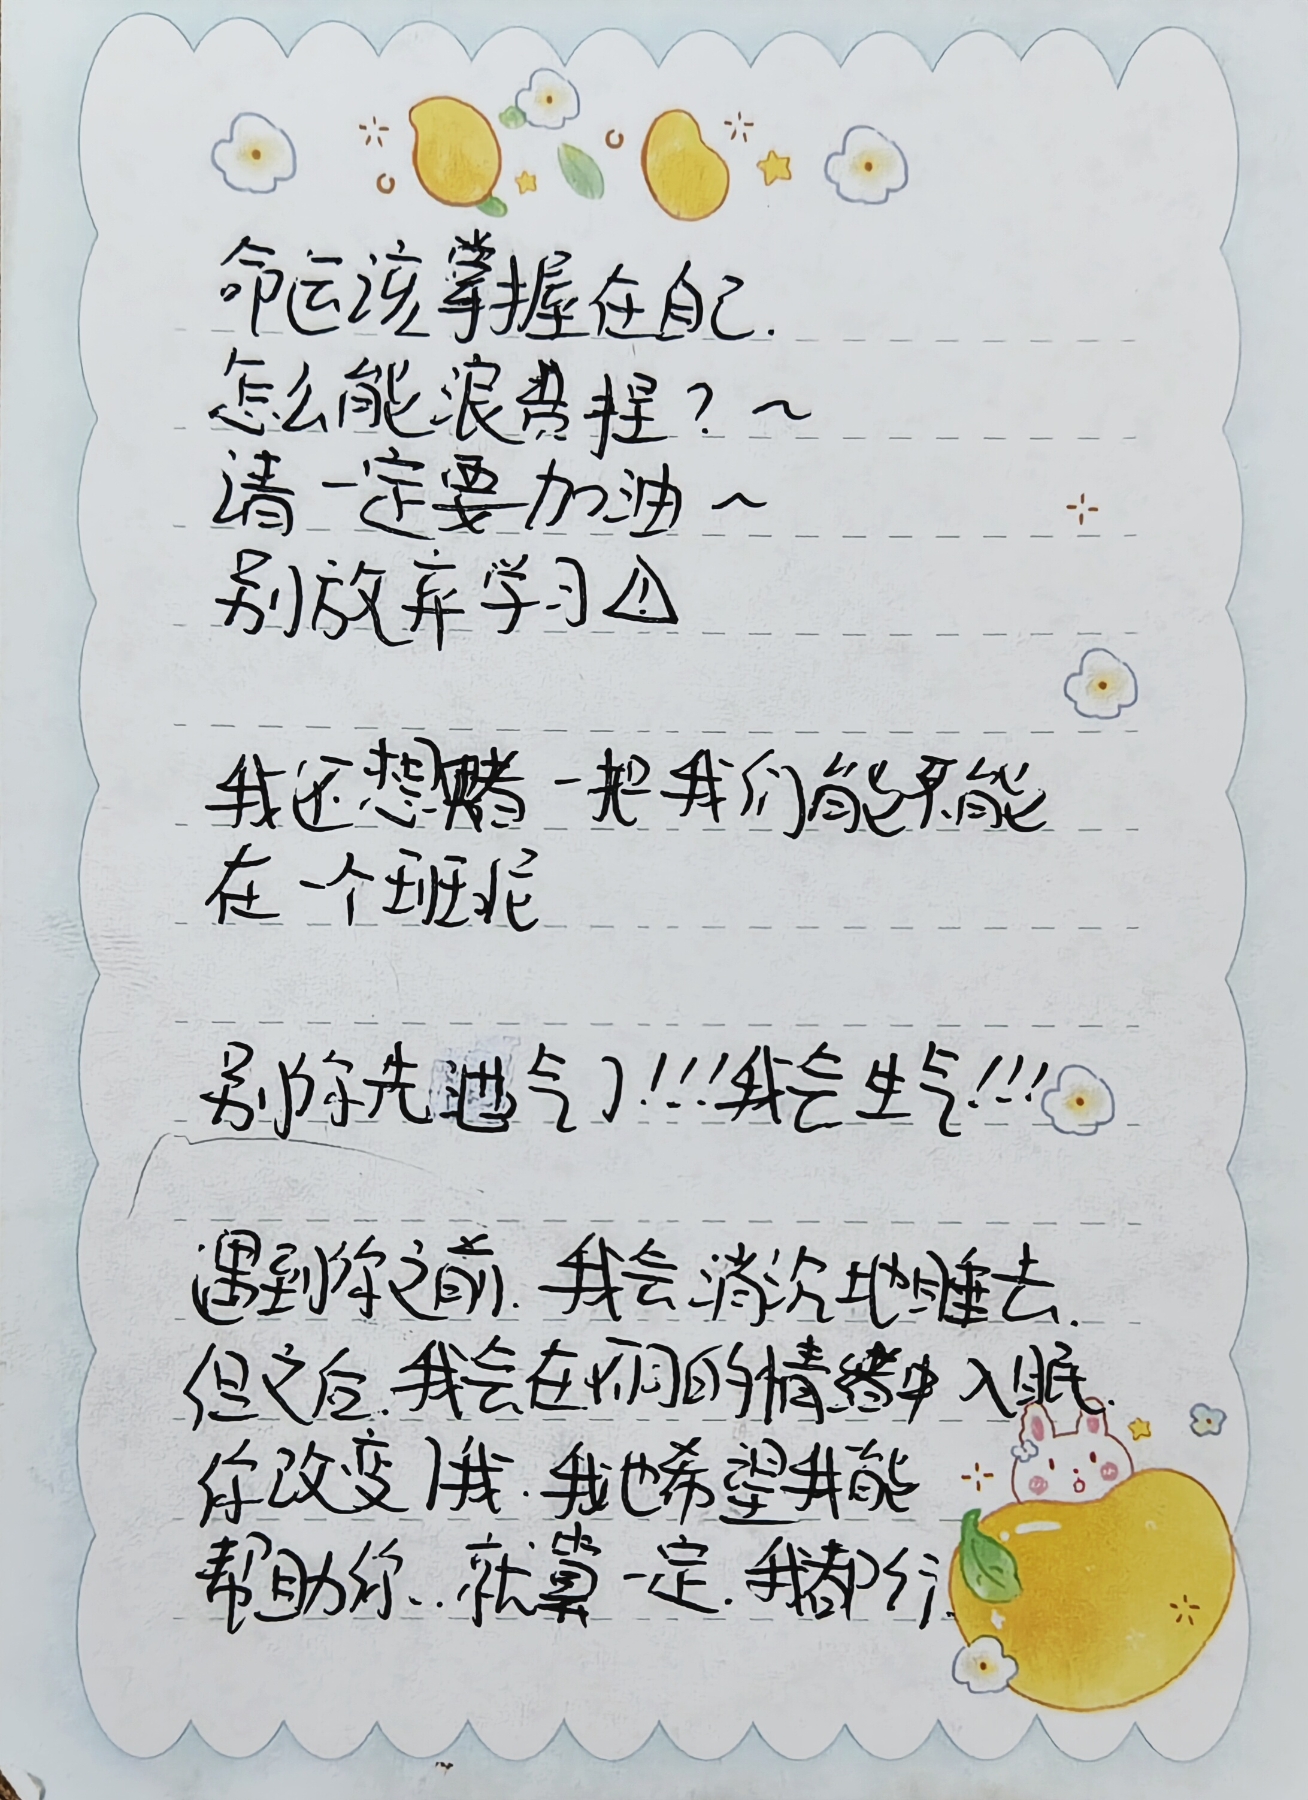 命运该掌握在自己.
怎么能浪费捏？～
请一定要加油～
别放弃学习⚠
我还想赌一把我们能不能
在一个班呢
别你先泄气了!!!我会生气!!!
遇到你之前.我会消沉地睡去.
但之后.我会在不同的情绪中入眠.
你改变了我.我也希望我能
帮助你..就算一定.我都行.